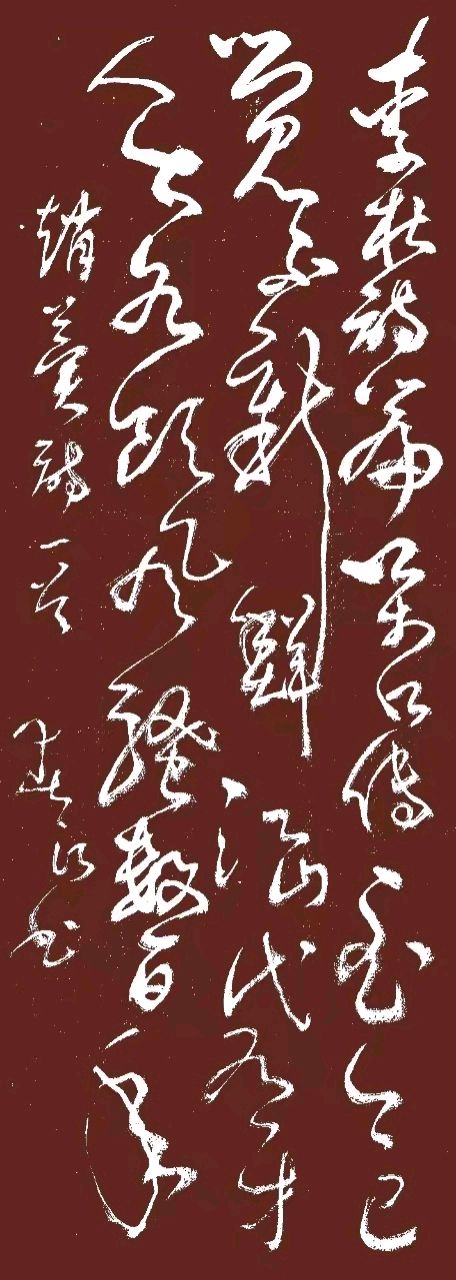 李杜詩篇萬口傳至今已
覺不新鮮江山代有才
人出各領風騷數百年
趙翼詩一首 書